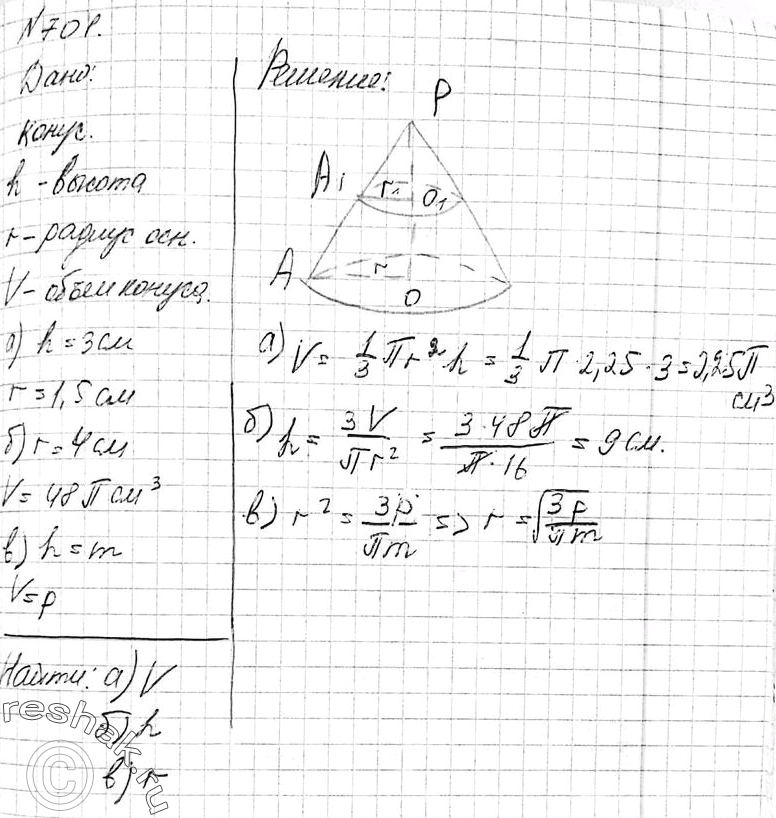 N 701.
Дано:
конус.
h - высота
r - радиус осн.
V - объем конуса.
а) h = 3 см
r = 1,5 см
б) r = 4 см
V = 48π см³
в) h = m
V = p
Найти: а) V
б) h
в) r
Решение:
P
A₁ r₁ O₁
A r O
а) V = 1/3 πr² · h = 1/3 π · 2,25 · 3 = 2,25π см³
б) h = 3V/πr² = 3·48π/π·16 = 9 см.
в) r² = 3p/πm => r = √(3p/πm)
reshak.ru
©